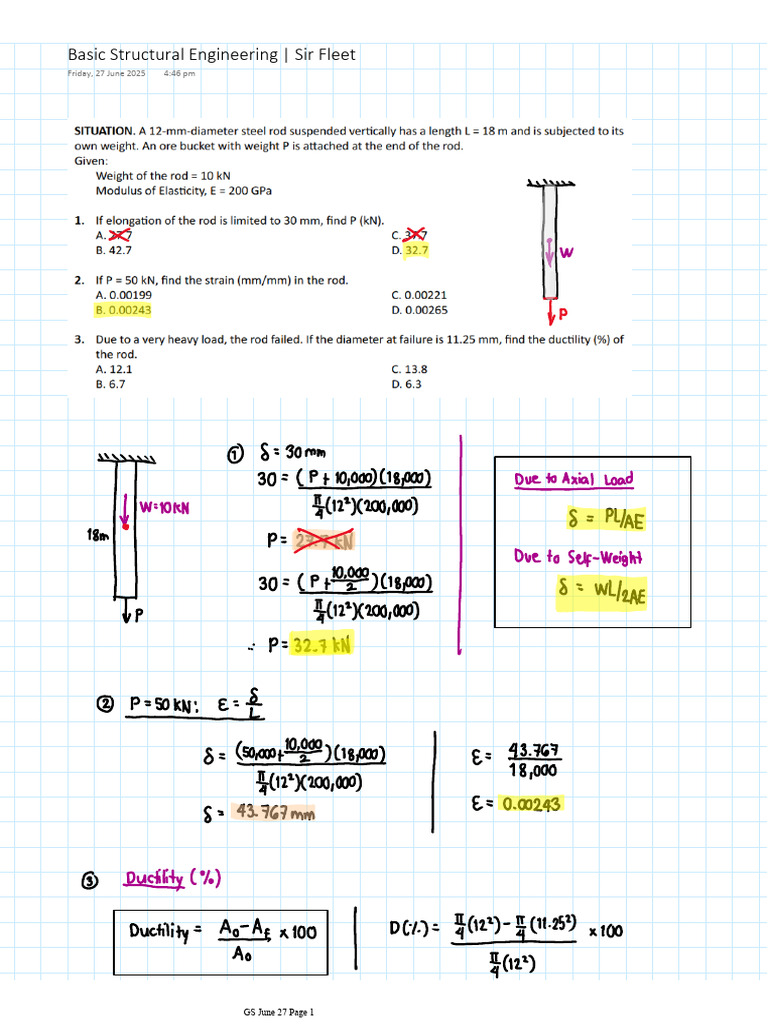 Basic Structural Engineering | Sir Fleet
Friday, 27 June 2025 4:46 pm
SITUATION. A 12-mm-diameter steel rod suspended vertically has a length L = 18 m and is subjected to its
own weight. An ore bucket with weight P is attached at the end of the rod.
Given:
Weight of the rod = 10 kN
Modulus of Elasticity, E = 200 GPa
1. If elongation of the rod is limited to 30 mm, find P (kN).
A. 7 C. 7
B. 42.7 D. 32.7
2. If P = 50 kN, find the strain (mm/mm) in the rod.
A. 0.00199 C. 0.00221
B. 0.00243 D. 0.00265
W
P
3. Due to a very heavy load, the rod failed. If the diameter at failure is 11.25 mm, find the ductility (%) of
the rod.
A. 12.1 C. 13.8
B. 6.7 D. 6.3
W=10KN
18m
P
① δ = 30mm
30 = (P + 10,000)(18,000)
π/4 (12²)(200,000)
P = 27.7 kN
30 = (P + 10,000/2)(18,000)
π/4 (12²)(200,000)
∴ P = 32.7 kN
Due to Axial Load
δ = PL/AE
Due to Self-Weight
δ = WL/2AE
② P = 50 KN: ε = δ/L
δ = (50,000 + 10,000/2)(18,000)
π/4 (12²)(200,000)
δ = 43.767 mm
ε = 43.767
18,000
ε = 0.00243
③ Ductility (%)
Ductility = Ao - Af x 100
Ao
D(%) = π/4 (12²) - π/4 (11.25²) x 100
π/4 (12²)
GS June 27 Page 1